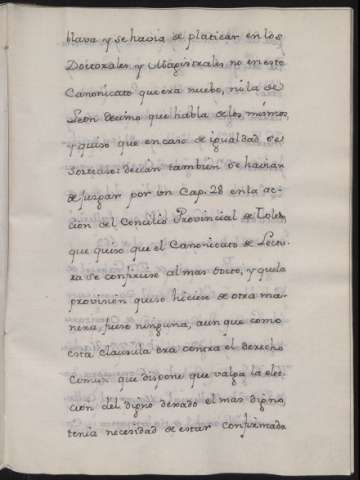 blava y se havia de platicar en los
Doctorales, y Magistrales no en este
Canonicato que era nuebo, ni la de
Leon decimo que habla de los mismos,
y quiso que en caso de igualdad se
sortease: decian tambien se havian
de juzgar por un Cap. 28 en la ac-
cion del Concilio Provincial de Toledo,
que quiso que el Canonicato de Lectu-
ra se confiriese al mas docto, y que la
provision que se hiciese de otra ma-
nera, fuese ninguna, aunque como
esta clausula era contra el derecho
comun que dispone que valga la elec-
cion del digno dexado el mas digno,
tenia necesidad de estar confirmada